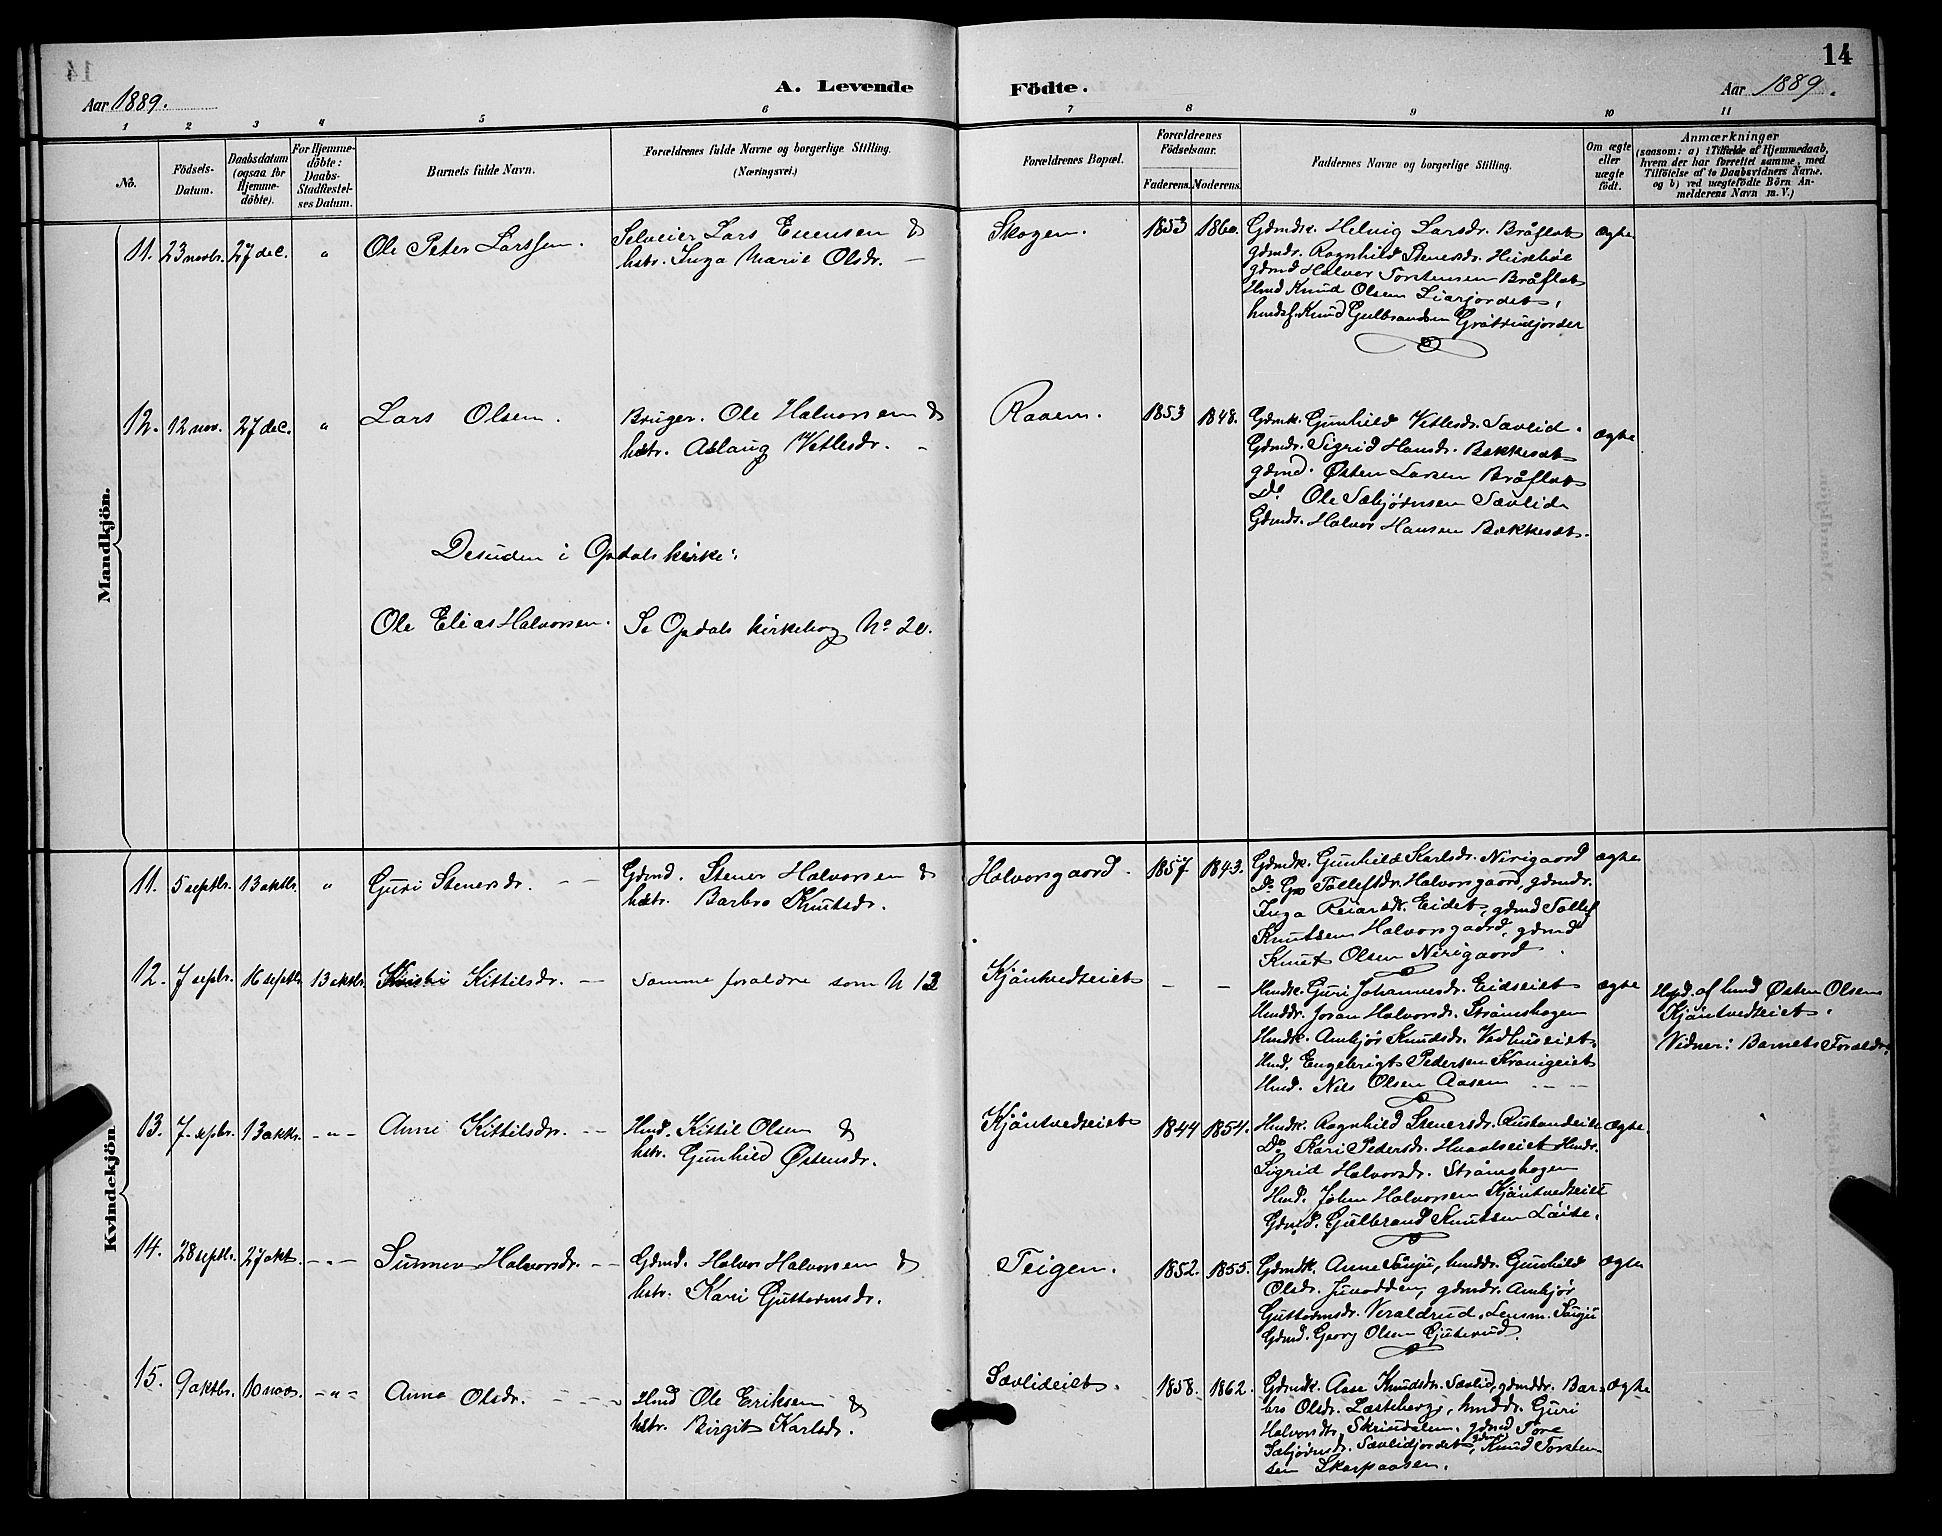 14
Aar 1889.
A. Levende Födte.
Aar 1889.
1 2 3 4 5 6 7 8 9 10 11
No.
Födsels-
Datum.
Daabsdatum
(ogsaa for
Hjemme-
döbte).
For Hjemme-
döbte:
Daabs-
Stadfæstel-
ses Datum.
Barnets fulde Navn.
Forældrenes fulde Navne og borgerlige Stilling.
(Næringsvei.)
Forældrenes Bopæl.
Forældrenes
Födselsaar.
Faderens. Moderens.
Faddernes Navne og borgerlige Stilling.
Om ægte
eller
uægte
födt.
Anmærkninger
(saasom: a) i Tilfælde af Hjemmedaab,
hvem der har forrettet samme, med
Tilföielse af to Daabsvidners Navne,
og b) ved uægtefödte Börn An-
melderens Navn m. V.)
Mandkjön.
11. 23 novbr. 27 dec. " Ole Peter Larssen.
Selveier Lars Evensen &
hstr. Inga Marie Olsdr. –
Skogen. 1853 1860.
Gdmdk. Helvig Larsdr. Bråflat
gdmdr. Ragnhild Stenersdr. Huseböe
gdmd Halvor Torstensen Bråflat
Hmd Knud Olsen Liarjordet,
hmdsf. Knud Gulbrandsen
ægte
12. 12 nov. 27 dec. " Lars Olsen.
Bruger. Ole Halvorsen &
hstr. Aslaug Vetlesdr. –
Raaen. 1853 1848.
Gdmk. Gunhild Vetlesdr. Savlid.
Gdmdr. Sigrid Hansdr. Bakkesæt
gdmd. Østen Larsen Bråflat
Do Ole Sæbjørnsen Savlid
Gdmds. Halvor Hansen Bakkesæt.
ægte
Desuden i Opdals kirke:
Ole Elias Halvorsen. Se Opdals kirkebog No 20.
Kvindekjön
11. 5 septbr. 13 oktbr. " Guri Stenersdr. – –
Gdmd. Stener Halvorsen &
hstr. Barbro Knutsdr.
Halvorsgaard. 1857 1843.
Gdmdk. Gunhild Karlsdr. Nerigaard
Do Gro Tollefsdr. Halvorsgaard, gdmdr.
Inga Reiarsdr. Eidet, gdmd Tollef
Knutsen Halvorsgaard, gdmd
Knut Olsen Nerigaard
ægte
12. 7 sepbr. 16 septbr. 13 oktbr. Kristi Kittilsdr. –
Samme forældre som N 13
Kjöntvedteiet – –
Hmdk. Guri Johannesdr. Eidseiet
Hmddr. Joran Halvorsdr. Strömshogen
Hmdk. Ambjör Knudsdr. Vedhuseiet
Hmd. Engebrigt Pedersen Kravigeiet
Hmd. Nils Olsen Aasen
ægte
Hjd. af hmd Østen Olsen
Kjöntvedteiet.
Vidner: Barnets Forældre.
13. 7 sepbr. 13 oktbr. – " – Anne Kittilsdr. –
Hmd. Kittil Olsen &
hstr. Gunhild Østensdr.
Kjöntvedteiet 1844 1854.
Hmdk. Ragnhild Stenersdr. Rustandeiet
Do Kari Pedersdr. Hvaalseiet Hmdr.
Sigrid Halvorsdr. Strömshogen
Hmd. John Halvorsen Kjöntvedteiet
Gdmd. Gulbrand Knutsen
ægte.
14. 28 septbr. 27 okt. – " – Sunnev Halvorsdr. – –
Gdmd. Halvor Halvorsen &
hstr. Kari Guttormsdr.
Teigen. 1852. 1855.
Gdmdk. Anne Sönju, hmddr. Gunhild
Olsdr. Juvodden, gdmdr. Ambjör
Guttormsdr. Veraldrud, Lensm. Sönju
Gdmd. Georg Olsen
ægte
15. 9 oktbr. 10 nov. – " – Anna Olsdr. – – –
Hmd Ole Eriksen &
hstr. Birgit Karlsdr.
Savlideiet. 1858. 1862.
Gdmdk. Aase Knudsdr. Savlid, gdmddr. Bar-
bro Olsdr. Lasteberg, hmddr. Guri
Halvorsdr. Skrindalen, gdmd Tore
Sæbjørnsd. Savlidjordet, gdmds Knud Torsten-
sen Skarpaasen.
ægte